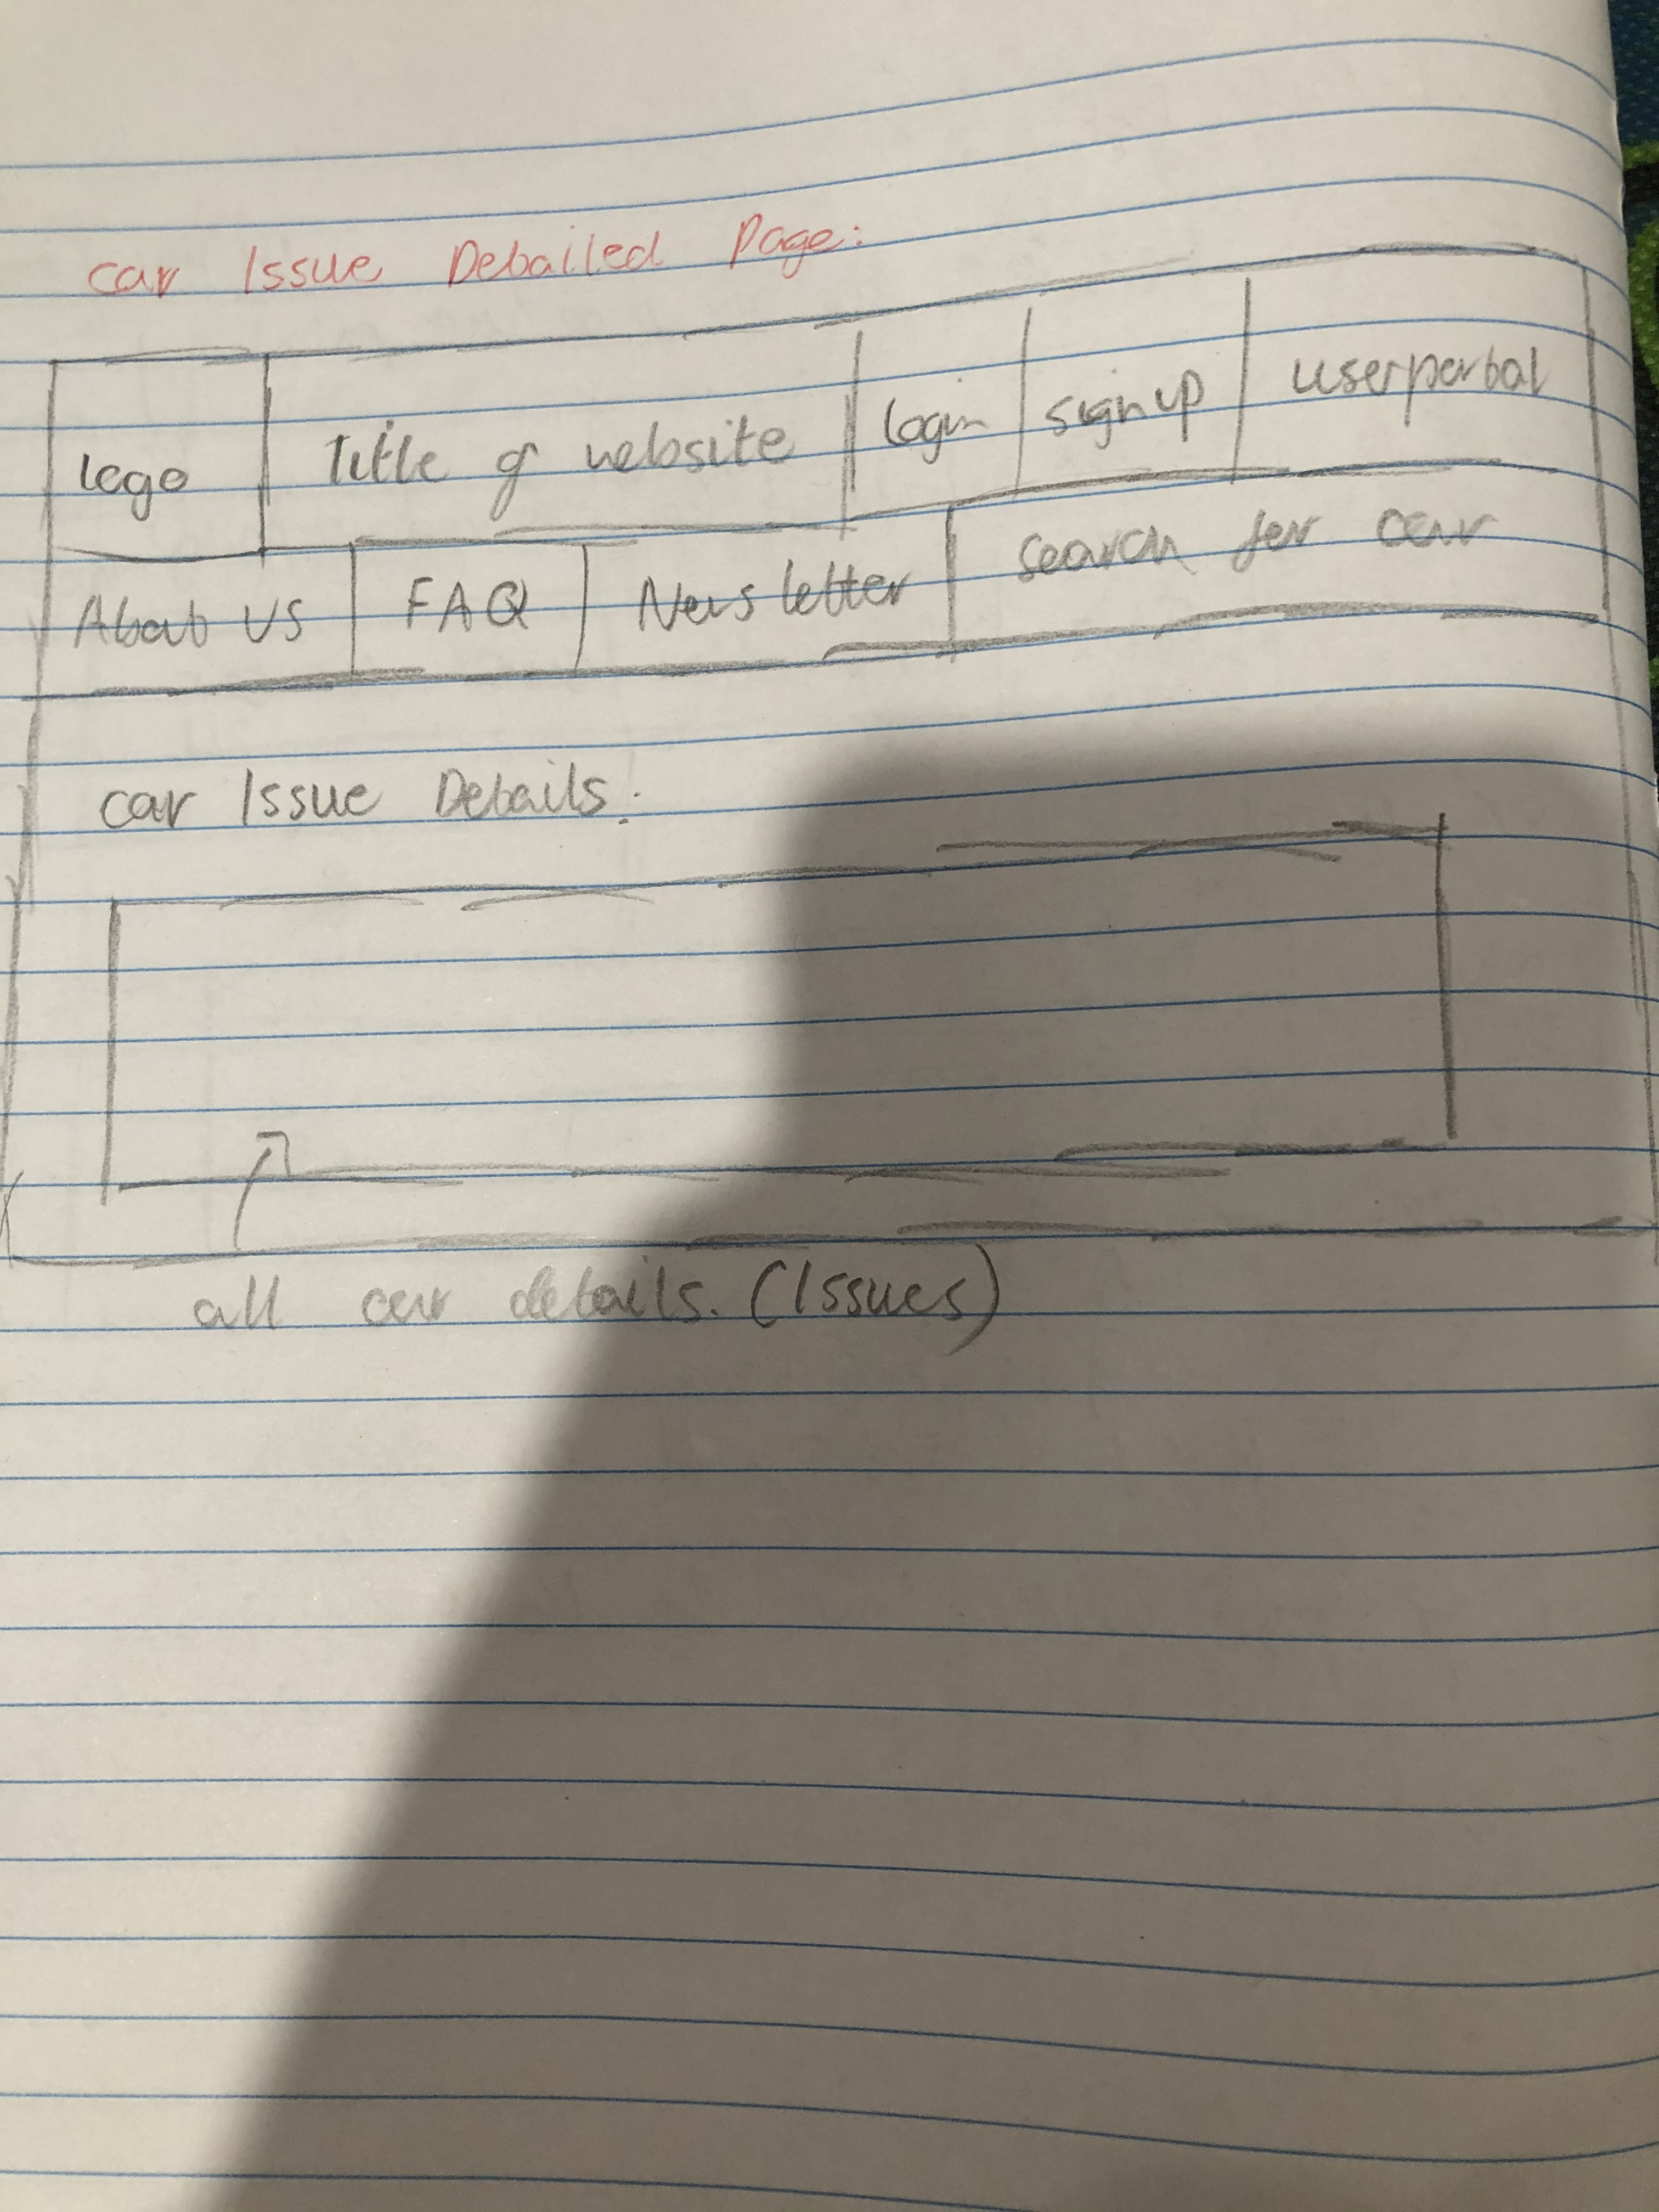 Car Issue Detailed Page:
logo Title of website login signup userportal
About US FAQ Newsletter search for car
car Issue Details:
all car details. (Issues)